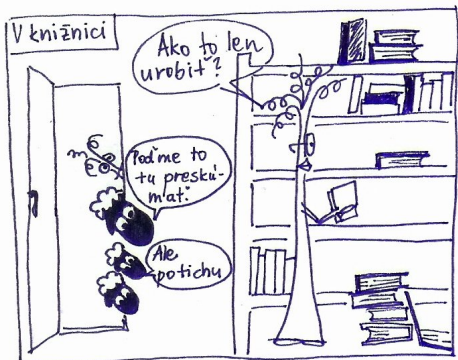 V knižnici
Ako to len
urobiť?
Poďme to
tu preskú-
mať.
Ale
potichu